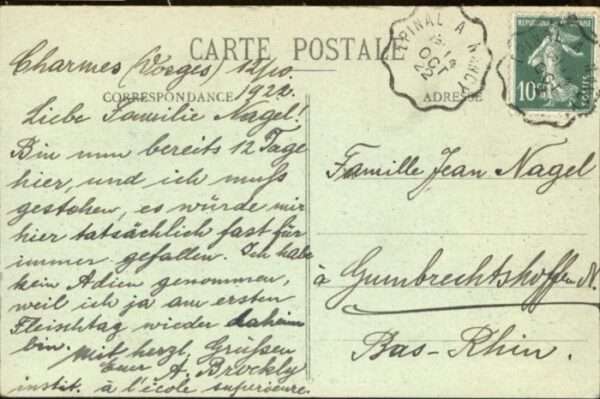 CARTE POSTALE
CORRESPONDANCE
ADRESSE
Charmes (Vosges) 12/10.
1922.
Liebe Familie Nagel!
Bin nun bereits 12 Tage
hier, und ich muß
gestehen, es würde mir
hier tatsächlich fast für
immer gefallen. Ich habe
kein Adieu genommen,
weil ich ja am ersten
Fleischtag wieder daheim
bin.
Mit herzl. Grüßen
Euer A. Brockly
instit. à l'école supérieure.
Famille Jean Nagel
à Gumbrechtshoffen N.
Bas-Rhin.
EPINAL A NANCY
OCT
22
10